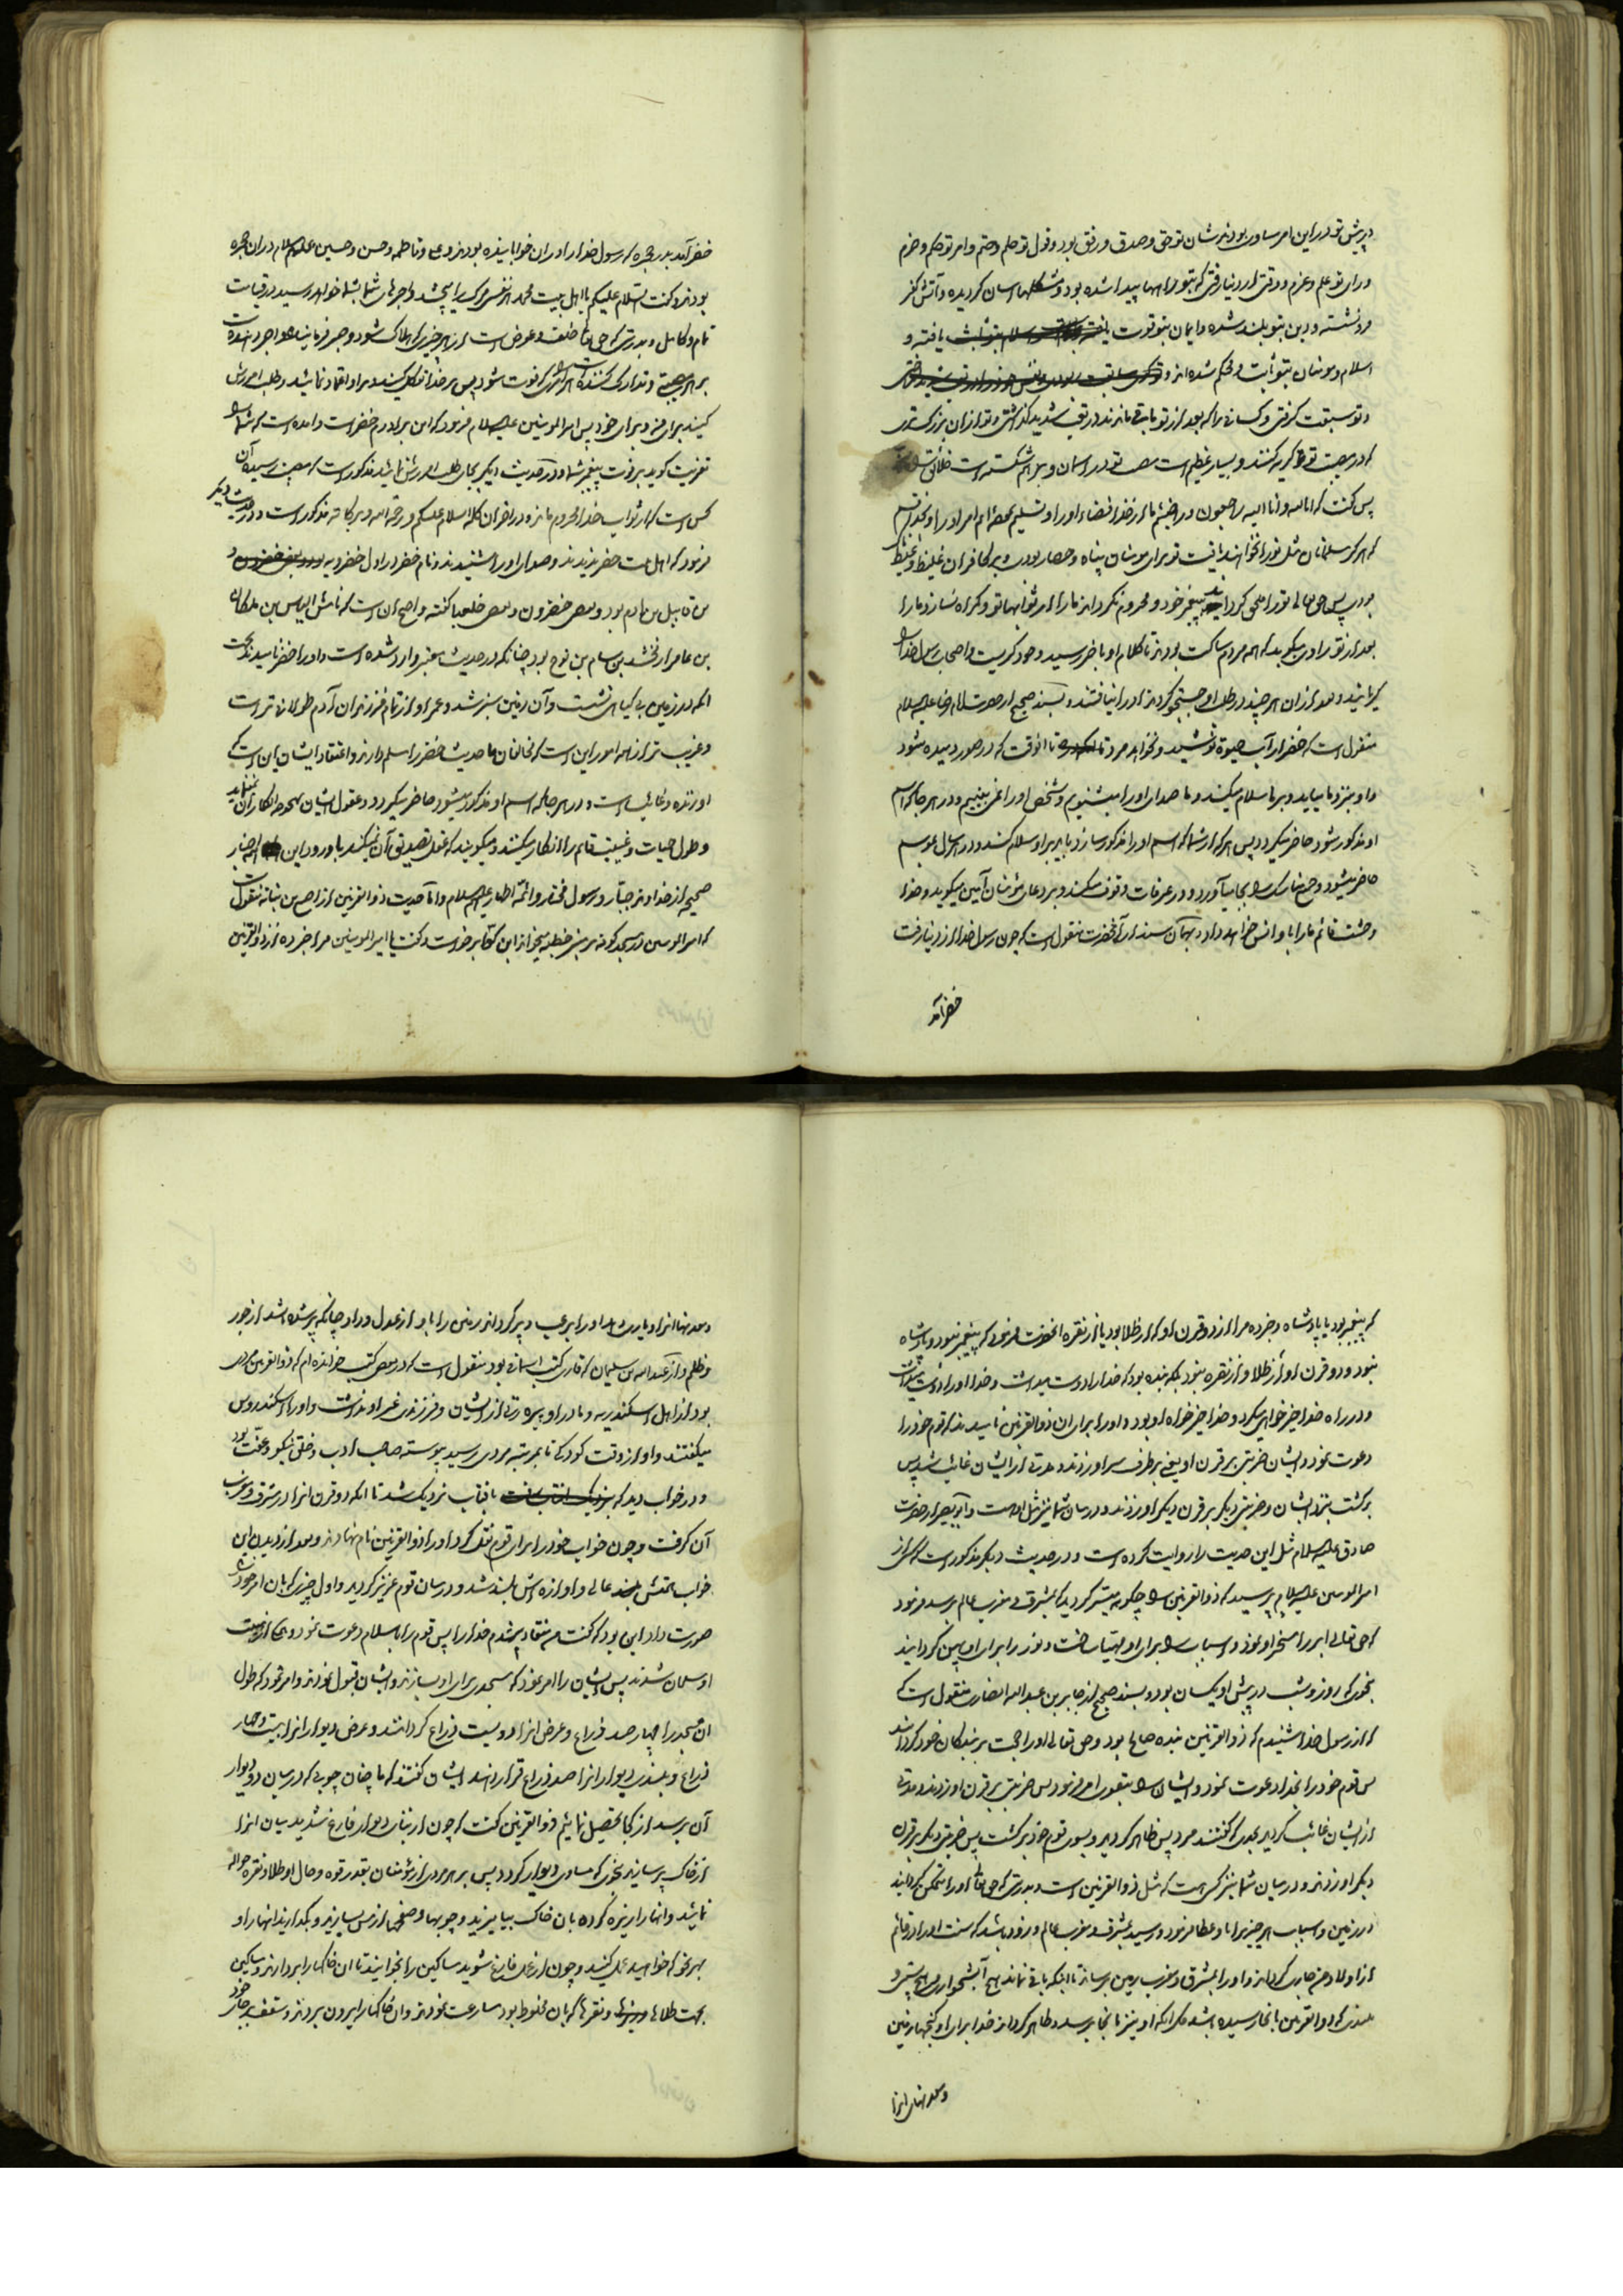 درپیش تو در این امر مساوی بودند شان تو حق و صدق و رفق بود و قول تو حکم و حتم و امر تو حلم و حزم
و رای تو علم و عزم و وقتی از دنیا رفتی که بتو راهها پیدا شده بود و مشکلها آسان گردیده و آتش کفر
فرو نشسته و دین بتو بلند شده و ایمان بتو قوت یافته و
اسلام و مومنان بتو ثابت و محکم شده اند و
و تو سبقت گرفتی و کسانی را که بعد از تو باقی ماندند در تعب شدید گذاشتی و تو از آن بزرگتری
که در مصیبت تو گریه کنند و بسیار عظیم است مصیبت تو در آسمان و در هم شکسته است خلایق
پس گفت که انا لله و انا الیه راجعون و راضی شده‌ایم از خدا قضاء او را و تسلیم کرده‌ایم امر او را و بخدا قسم
که هرگز مسلمانان مثل تو را نخواهند یافت تو برای مومنان پناه و حصار بودی و بر کافران غلیظ و غیظ
بودی پس حق تعالی تو را ملحق گرداند به پیغمبر خود و محروم نگرداند ما را از ثواب تو و گمراه نسازد ما را
بعد از تو راوی میگوید که همه مردم ساکت بودند تا کلام او باخر رسید و خود گریست و اصحاب رسول خدا را
گریانید و بعد از آن هرچند در طلب او جستجو کردند او را نیافتند و بسند صحیح از حضرت امام رضا علیه السلام
منقول است که خضر از آب حیوة نوشید و نخواهد مرد تا آنوقت که در صور دمیده شود
و او بنزد ما میاید و بر ما سلام میکند و ما صدای او را میشنویم و شخص او را نمی‌بینیم و در هر جا که اسم
او مذکور شود حاضر میگردد پس هر که از شما که اسم او را مذکور سازد باید بر او سلام کند و در هر سال موسم
حاضر میشود و جمیع مناسک را بجا میآورد و در عرفات وقوف میکند و بر دعای مومنان آمین میگوید و خدا
وحشت قائم ما را باو انس خواهد داد و بهمان سند از آنحضرت منقول است که چون رسول خدا از دنیا رفت
خضر آمد
خضر آمد بدر حجره که رسول خدا را در آن خوابانیده بودند و علی و فاطمه و حسن و حسین علیهم السلام در آن حجره
بودند و گفت السلام علیکم یا اهل بیت محمد هر نفسی مرگ را میچشد و اجرهای شما بشما خواهد رسید در قیامت
تمام و کامل و بدرستی که حق تعالی خلف و عوض است از هر چیزی که هلاک شود و صبر فرماینده و اجر دهنده است
بر هر مصیبتی و تدارک کننده است هر امری را که فوت شود پس بر خدا توکل کنید و بر او اعتماد نمائید و طلب آمرزش
کنید برای من و برای خود پس امیر المومنین علیه السلام فرمود که این برادرم خضر است و آمده است که شما را
تعزیت گوید بر فوت پیغمبر شما و در حدیث دیگر بجای طلب آمرزش نمائید مذکور است که مصیبت رسیده آن
کس است که از ثواب خدا محروم ماند و در آخر آن کلام السلام علیکم و رحمة الله و برکاته مذکور است و در حدیث دیگر
فرمود که اهل بیت خضر ندیدند و صدای او را شنیدند و نام خضر در اول خضرویه
بن قابیل بن آدم بود و بعضی خضرون و بعضی خلعیا گفته و اصح آن است که نامش الیاس بن ملکان
بن عامر ارفخشد بن سام بن نوح بود چنانکه در حدیث معتبر وارد شده است و او را خضر نامیدند بجهت
آنکه در زمین بی گیاهی نشست و آن زمین سبز شد و عمر او از تمام فرزندان آدم طولانی‌تر است
و غریب‌تر از همه امور این است که مخالفان ما حدیث خضر را مسلم دارند و اعتقاد ایشان این است که
او زنده و غائب است و در هر جا که اسم او مذکور میشود حاضر میگردد و عقول ایشان بهیچ وجه انکار آن نمینماید
و طول حیات و غیبت قائم را انکار میکنند و میگویند که عقل تصدیق آن نمیکند با ورود این همه اخبار
صحیحه از خداوند جبار و رسول مختار و ائمه اطهار علیهم السلام و اما حدیث ذوالقرنین از اصبغ بن نباته منقول است
که امیر المومنین در مسجد کوفه بر منبر خطبه میخواند ابن کوا برخواست و گفت یا امیر المومنین مرا خبر ده از ذوالقرنین
که پیغمبر بود یا پادشاه و خبر ده مرا از دو قرن او که از طلا بود یا از نقره آنحضرت فرمود که پیغمبر نبود و پادشاه
نبود و دو قرن او از طلا و از نقره نبود بلکه بنده بود که خدا را دوست میداشت و خدا او را دوست میداشت
و در راه خدا خیر خواهی میکرد و خدا خیر خواه او بود و او را برای آن ذوالقرنین نامیدند که قوم خود را
دعوت نمود و ایشان ضربتی بر قرن او یعنی بر طرف سر او زدند و مدتی از ایشان غائب شد پس
برگشت بنزد ایشان و ضربتی دیگر بر قرن دیگر او زدند و در میان شما نیز مثل او هست و ابو بصیر از حضرت
صادق علیه السلام مثل این حدیث را روایت کرده است و در حدیث دیگر مذکور است که کسی از
امیر المومنین علیه السلام پرسید که ذوالقرنین را چگونه میسر گردید که بمشرق و مغرب عالم برسد فرمود
که حق تعالی ابر را مسخر او نمود و اسباب را برای او مهیا ساخت و نور را برای او پهن گردانید
بنحوی که روز و شب در پیش او یکسان بود و بسند صحیح از جابر بن عبد الله انصاری منقول است که
که از رسول خدا شنیدم که ذوالقرنین بنده صالح بود و حق تعالی او را حجت بر بندگان خود گردانید
پس قوم خود را بخدا دعوت نمود و ایشان را بتقوی امر فرمود پس ضربتی بر قرن او زدند و مدتی
از ایشان غائب گردید بحدی که گفتند مرد پس ظاهر گردید و بسوی قوم خود برگشت پس ضربتی دیگر بر قرن
دیگر او زدند و در میان شما نیز کسی هست که مثل ذوالقرنین است و بدرستی که حق تعالی او را متمکن گردانید
در زمین و اسباب هر چیز را باو عطا فرمود و رسید بمشرق و مغرب عالم و زود باشد که سنت او را در قائم
از اولاد من جاری گرداند و او را بمشرق و مغرب زمین برساند تا اینکه باقی نماند هیچ آبشخواری و هیچ پستی و
بلندی که ذوالقرنین بآنجا رسیده باشد مگر آنکه او نیز بآنجا برسد و ظاهر گرداند خدا برای او گنجهای زمین
و معدنهای آنرا
و معدنهای آنرا و یاری دهد او را برعب و پر گرداند زمین را باو از عدل و داد چنانکه پر شده باشد از جور
و ظلم و از عبد الله بن سلیمان که قاری کتب آسمانی بود منقول است که در بعضی کتب خوانده‌ام که ذوالقرنین مردی
بود از اهل اسکندریه و مادر او پیره زنی از ایشان و فرزندی غیر او نداشت و او را اسکندروس
میگفتند و او از وقت کودکی تا بمرتبه مردی رسید پیوسته صاحب ادب و خلق نیکو و عفت بود
و در خواب دید که بافتاب نزدیک شد تا آنکه دو قرن آنرا در مشرق و مغرب
آن گرفت و چون خواب خود را برای قوم نقل کرد او را ذوالقرنین نام نهادند و بعد از دیدن این
خواب همتش عالی و آوازه‌اش بلند شد و در میان قوم عزیز گردید و اول چیزی که بآن امر خود را
صورت داد این بود که گفت من منقاد شدم خدا را پس قوم را باسلام دعوت نمود و همگی از هیبت
او مسلمان شدند پس ایشان را امر نمود که مسجدی برای او بسازند و ایشان قبول نمودند و امر نمود که طول
آن مسجد را چهار صد ذراع و عرض آنرا دویست ذراع گردانند و عرض دیوار آنرا بیست و چهار
ذراع و بلندی دیوار آنرا صد ذراع قرار دهند ایشان گفتند که ما چنان چوبی که در میان دو دیوار
آن برسد از کجا تحصیل نمائیم ذوالقرنین گفت که چون از بنای دیوار فارغ شدید میان آنرا
از خاک پر سازید بنحوی که مساوی دیوار گردد پس بر هر مردی از مومنان بقدر قوه و حال او طلا و نقره حواله
نمائید و آنها را ریزه کرده بآن خاک بیامیزید و چوبها و صفحها از مس بسازید و بگدازید آنها را و
بهر نحو که خواهید عمل کنید و چون از عمل فارغ شوید مساکین را بخوانید تا آن خاکها را بردارند و مساکین
بجهت طلاها و نقره‌ها که بآن مخلوط بود مسارعت نمودند و آن خاکها را بیرون بردند و سقف بر جای خود